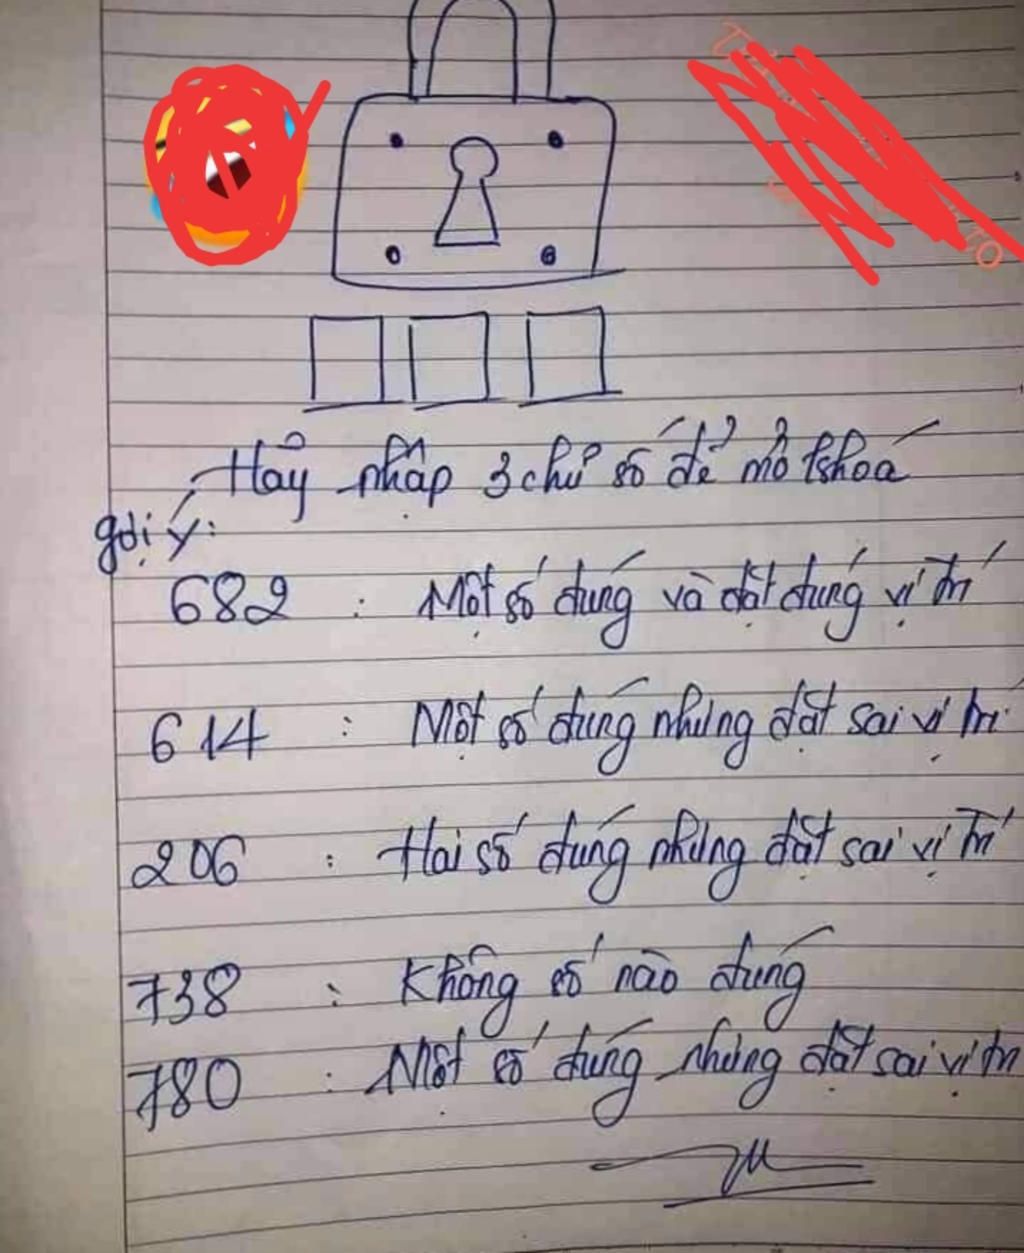 Hãy nhập 3 chữ số để mở khoá
gợi ý:
682 : Một số đúng và đặt đúng vị trí
614 : Một số đúng nhưng đặt sai vị trí
206 : Hai số đúng nhưng đặt sai vị trí
738 : Không số nào đúng
780 : Một số đúng nhưng đặt sai vị trí